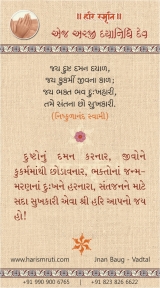 ॥ હરિ સ્મૃતિ ॥
એજ અરજી દયાનિધિ દેવ
જય દુષ્ટ દમન દયાળ,
જય કુકર્મી જીવના કાળ;
જય ભક્ત ભવ દુઃખહારી,
તમે સંતના છો સુખકારી.
(નિષ્કુળાનંદ સ્વામી)
દુષ્ટોનું દમન કરનાર, જીવોને
કુકર્મમાંથી છોડાવનાર, ભક્તોનાં જન્મ-
મરણનાં દુઃખને હરનારા, સંતજનને માટે
સદા સુખકારી એવા શ્રી હરિ આપનો જય
હો!
www.harismruti.com
Jnan Baug - Vadtal
+91 990 900 6765
+91 823 882 6622